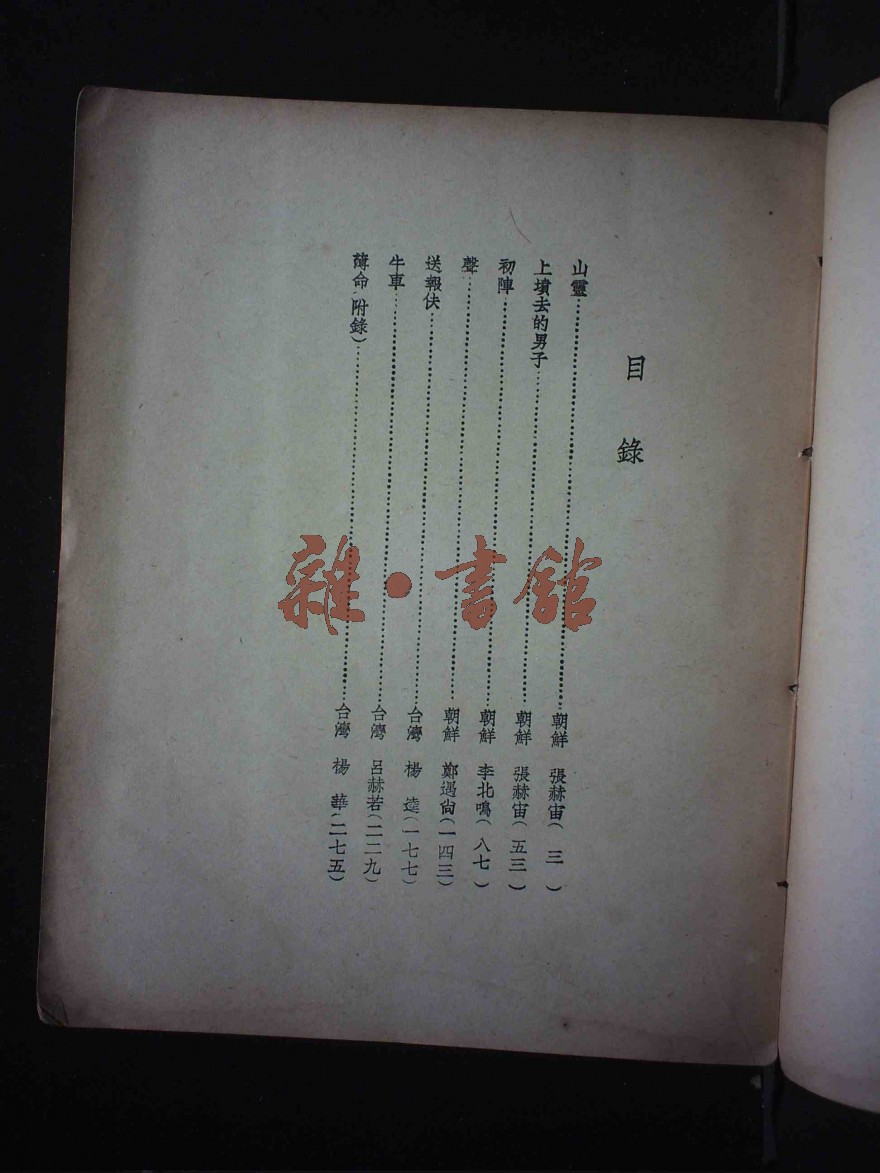 目錄
山靈⋯⋯朝鮮 張赫宙(三)
上墳去的男子⋯⋯朝鮮 張赫宙(五三)
初陣⋯⋯朝鮮 李北鳴(八七)
聲⋯⋯朝鮮 鄭遇尙(一四三)
送報伕⋯⋯台灣 楊逵(一七七)
牛車⋯⋯台灣 呂赫若(二二九)
薄命(附錄)⋯⋯台灣 楊華(二七五)
雜·書館